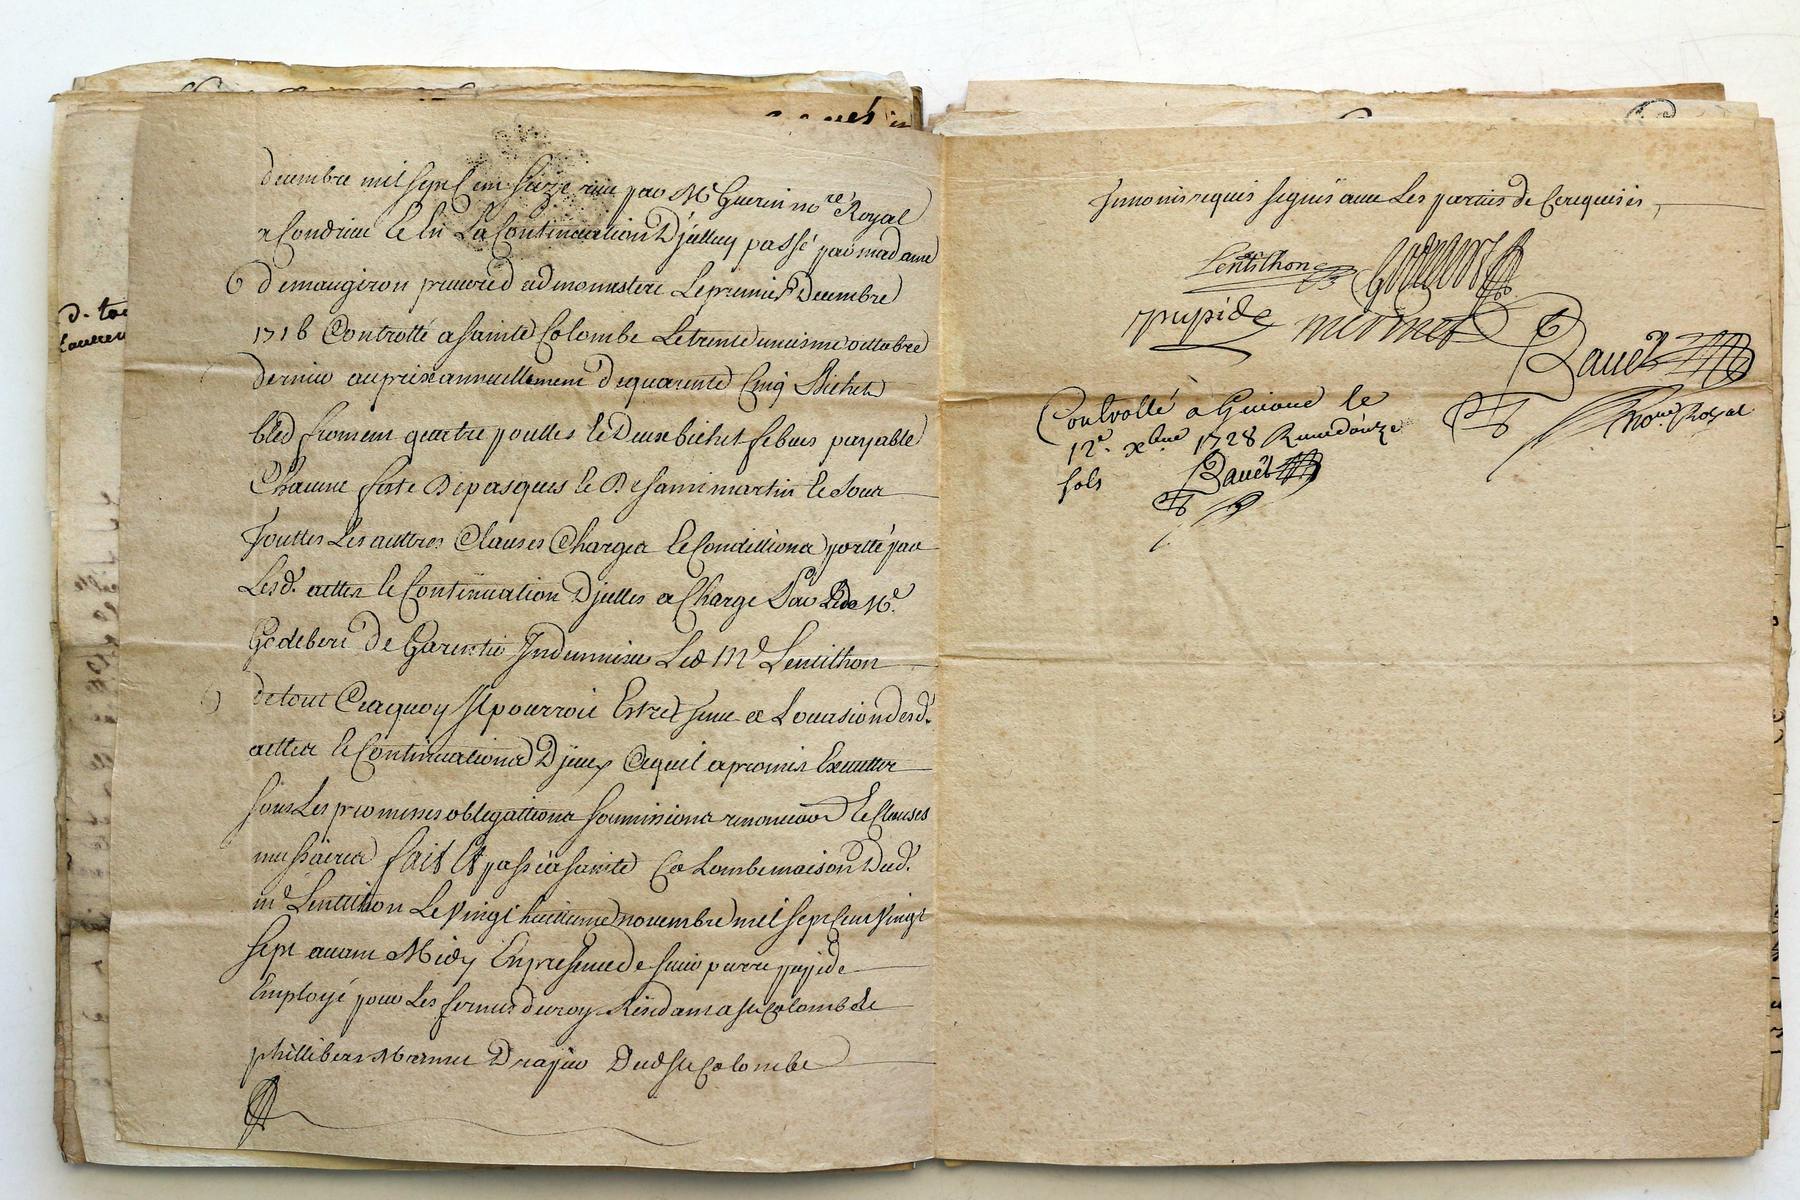 decembre mil sept cen seize recu par Me Guerin nore Royal
a Condrieu et en La Continuation D'jcelluy passé par madame
Demaugiron prieure dud monastere Le premier Decembre
1718 Controllé a Sainte Colombe Le trente unieme octobre
dernier au prix annuellement de quarente Cinq Bichet
bled froment quatre poulles et Deux bichet febves payable
Chacune feste De pasques et De saint martin et sous
Touttes Les auttres Clauses Charges et Conditions portté par
Lesd. acttes et Continuation D'jcelles a Charge Par Led Me
Godebert De Garentir Indemniser Led Me Lentilhon
de tout Ce a quoy Il pourroit Estre Tenu a L'ocasion desd.
acttes et Continuations D'jceux Ce qu'il a promis Executter
sous Les promesses obligattions soumissions renonciaon et Clauses
necessaires fait Et passé a sainte Colombe maison Dud.
Me Lentilhon Le Vingt huitieme novembre mil sept Cent Vingt
sept avant Midy En presence de sieur pierre pupide
Employé pour Les fermes du roy Residant a ste Colombe et
phillibert Mermet Drapier Dud ste Colombe
Temoins requis signés avec Les parties de Ce requises
Lentilhon Godebert
pupide mermet
Bauet
Nore Royal
Controllé a Givord le
12e xbre 1728 Receu douze
sols Bauet